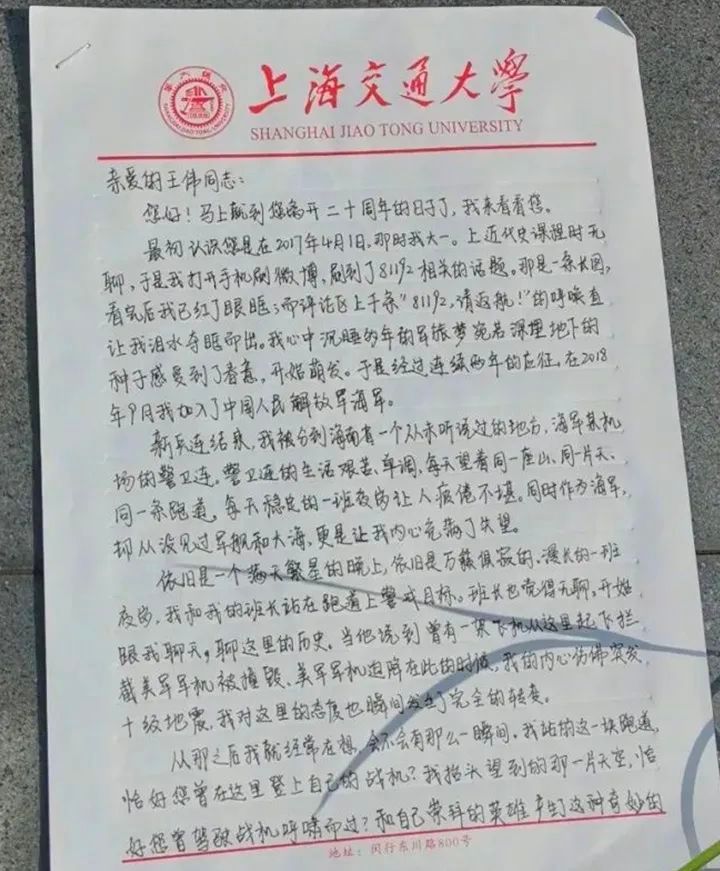 上海交通大学
SHANGHAI JIAO TONG UNIVERSITY
SHANGHAI JIAO TONG UNIVERSITY
亲爱的王伟同志:
您好!马上就到您离开二十周年的日子了,我来看看您。
最初认识您是在2017年4月1日,那时我大一。上近代史课程时无
聊,于是我打开手机刷微博,刷到了81192相关的话题。那是一条长图,
看完后我已红了眼眶;而评论区上千条"81192,请返航!"的呼唤直
让我泪水夺眶而出。我心中沉睡多年的军旅梦宛若深埋地下的
种子感受到了春意,开始萌发。于是经过连续两年的应征,在2018
年9月我加入了中国人民解放军海军。
新兵连结束,我被分到海南省一个从未听说过的地方,海军某机
场的警卫连。警卫连的生活艰苦、单调,每天望着同一座山、同一片天、
同一条跑道,每天稳定的一班夜岗让人疲倦不堪。同时作为海军,
却从没见过军舰和大海,更是让我内心充满了失望。
依旧是一个满天繁星的晚上,依旧是万籁俱寂的、漫长的一班
夜岗,我和我的班长站在跑道上警戒目标。班长也觉得无聊,开始
跟我聊天,聊这里的历史。当他说到曾有一架飞机从这里起飞拦
截美军军机被撞毁、美军军机迫降在此的时候,我的内心仿佛突发
十级地震,我对这里的态度也瞬间发生了完全的转变。
从那之后我就经常在想,会不会有那么一瞬间,我站的这一块跑道,
恰好您曾在这里登上自己的战机?我抬头望到的那一片天空,恰
好您曾驾驶战机呼啸而过?和自己崇拜的英雄产生了这种奇妙的
地址:闵行东川路800号